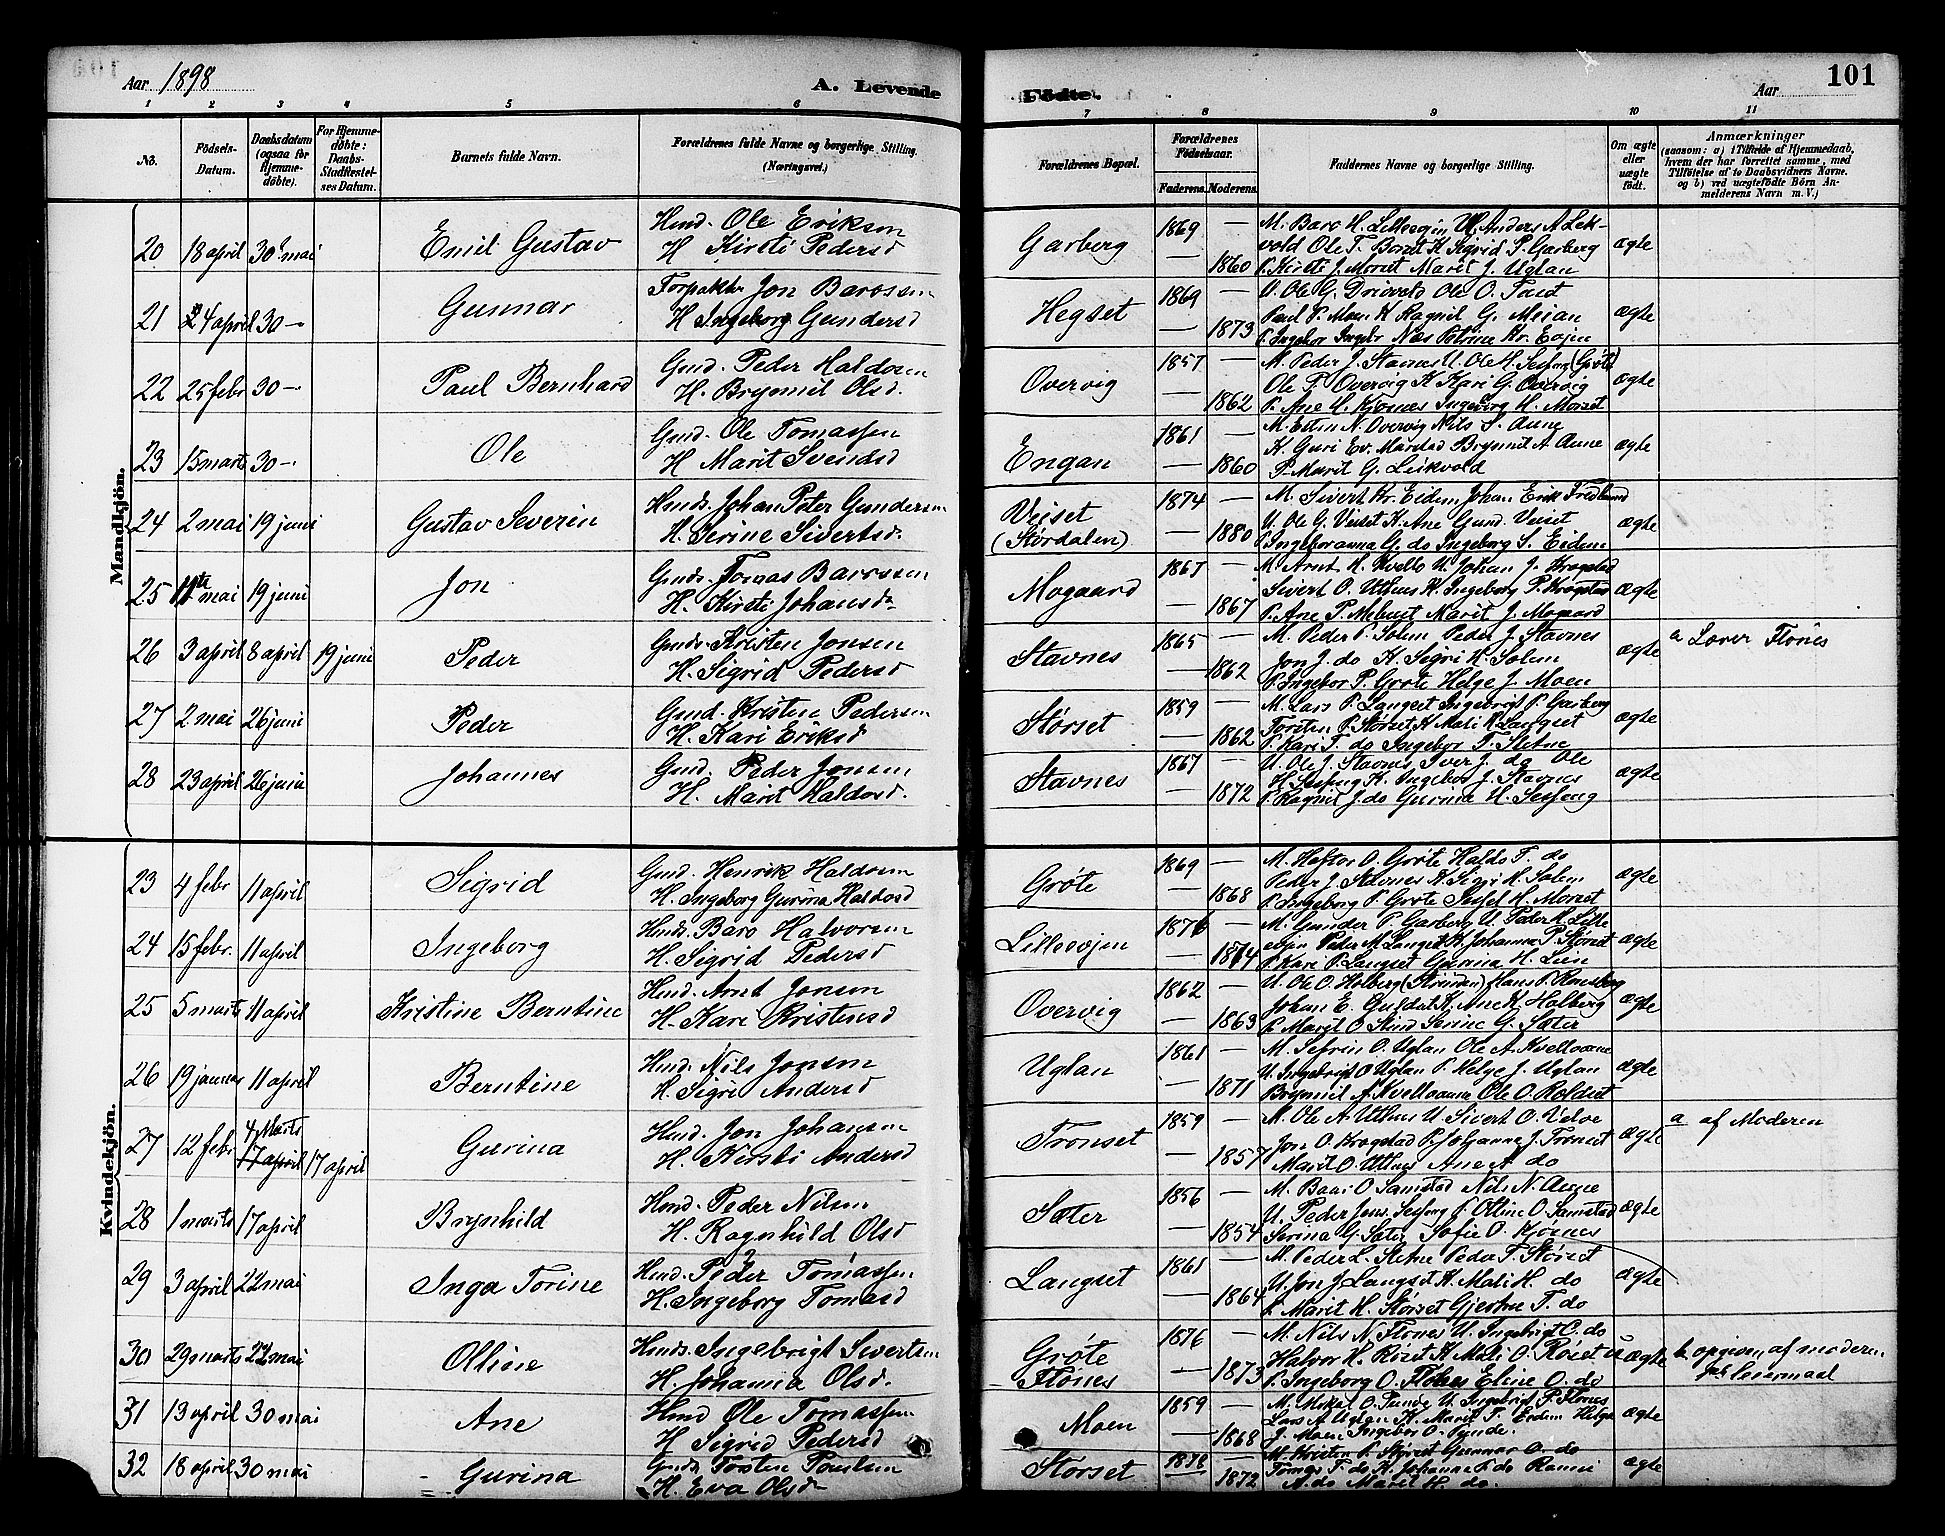 Aar 1898
A. Levende
Fødte.
Aar
101
1 2 3 4 5 6 7 8 9 10 11
No.
Födsels-Datum.
Daabsdatum (ogsaa for Hjemme-døbte).
For Hjemme-døbte: Daabs-Stadfæstel-ses Datum.
Barnets fulde Navn.
Forældrenes fulde Navne og borgerlige Stilling. (Næringsvei.)
Forældrenes Bopæl.
Forældrenes Fødselsaar.
Faderens. Moderens.
Faddernes Navne og borgerlige Stilling.
Om ægte eller uægte født.
Anmærkninger
(saasom: a) i Tilfælde af Hjemmedaab, hvem der har forrettet samme, med Tilføielse af to Daabsvidners Navne. og b) ved uægtefødte Børn An-melderens Navn m. V.)
Mandkjön.
20 18 april 30 mai Emil Gustav Hmd. Ole Eriksen
H. Kirsti Pedersd
Garberg 1869 — 1860
P. Kirsti J. Morset Marit J. Uglan
ægte
21 24 april 30 — Gunnar Forpakter Jon Barossen
H. Ingeborg Gundersd
Hegset 1869 — 1873
Paul P. Moen K. Ragnil G. Meian
ægte
22 25 febr 30 — Paul Bernhard Gmd. Peder Haldosen
H. Brynnil Olsd.
Overvig 1857 — 1862
M. Peder J. Stavnes U. Ole H. Sesseng (Grøte)
Ole P. Overvig K. Kari G. Overvig
P. Ane H. Kjøsnes Ingeborg H. Morset
ægte
23 15 marts 30 — Ole Gmd. Ole Tomassen
H. Marit Svendsd
Engan 1861 — 1860
M. Esten N. Overvig Nils S. Aune
K. Guri Ev. Marstad Brynnil A. Aune
P. Marit G. Leikvold
ægte
24 2 mai 19 juni Gustav Severin Hmds. Johan Peter Gundersen
H. Serine Sivertsd.
Veiset (Størdalen) 1874 — 1880
M. Sivert Kr. Eidem Johan Erik Fredlund
U. Ole G. Veiset K. Ane Gund. Veiset
P. Ingeboranna G. do Ingeborg S. Eidem
ægte
25 11te mai 19 juni Jon Gmds. Tomas Barossen
H. Kirsti Johansd
Mogaard 1867 — 1867
M. Arnt H. Kvello U. Johan J. Krogstad
Sivert O. Uthus K. Ingeborg P. Krogstad
P. Ane P. Mehust Marit J. Mogaard
ægte
26 3 april 8 april 19 juni Peder Gmds. Kristen Jonsen
H. Sigrid Pedersd
Stavnes 1865 — 1862
M. Peder P. Solem Peder J. Stavnes
Jon J. do K. Sigri H. Solem
P. Ingebor P. Grøte Helge J. Moen
ægte
a Lærer Flønes
27 2 mai 26 juni Peder Gmd. Kristen Pedersen
H. Kari Eriksd
Størset 1859 — 1862
M. Lars P. Langset Ingebrigt P. Garberg
Torsten P. Størset K. Mali K. Langset
P. Kari T. do Ingebor T. Sletne
ægte
28 23 april 26 juni Johannes Gmd. Peder Jonsen
H. Marit Haldosd.
Stavnes 1867 — 1872
U. Ole J. Stavnes Iver J. do Ole
H. Sesseng K. Ingebor J. Stavnes
P. Ragnil J. do Gurina H. Sesseng
ægte
Kvindekjön.
23 4 febr 11 april Sigrid Gmd. Henrik Haldosen
H. Ingeborg Gurina Haldosd
Grøte 1869 — 1868
M. Haftor O. Grøte Haldo T. do
Peder J. Stavnes K. Sigri H. Solem
P. Ingeborg P. Grøte Sessel H. Morset
ægte
24 15 febr. 11 april Ingeborg Hmds. Baro Halvorsen
H. Sigrid Pedersd
Lilleevjen 1876 — 1874
M. Gunder P. Garberg U. Peder H. Lille
evjen Peder M. Langset K. Johanna P. Størset
P. Kari P. Langset Gurina H. Lien
ægte
25 5 marts 11 april Kristine Berntine Hmd. Arnt Jonsen
H. Kare Kristensd
Overvig 1862 — 1863
U. Ole O. Holberg (Størdalen) Hans P. Rensberg
Johan E. Gulset K. Ane K. Halberg
P. Marit O. Stind Serine G. Sæter
ægte
26 19 januar 11 april Berntine Hmd. Nils Jonsen
H. Sigri Andersd
Uglan 1861 — 1871
M. Sefrin O. Uglan Ole A. Kvelloaune
U. Ingebrigt O. Uglan P. Helge J. Uglan
Brynnil A. Kvelloaune Ole O. Roldset
ægte
27 12 febr 4 Marts 17 april 17 april Gurina Hmd. Jon Johansen
H. Kirsti Andersd
Trønset 1859 — 1857
M. Ole A. Uthus U. Sivert O. Udve
Jon O. Krogstad P. Johanna J. Trønset
Marit O. Uthus Ane A. do
ægte
a af Moderen
28 1 marts 17 april Brynhild Hmd. Peder Nilsen
H. Ragnhild Olsd
Sæter 1856 — 1854
M. Baar O. Samstad Nils N. Aune
U. Peder Jons. Sesseng P. Olline O. Samstad
Serina G. Sæter Sofie O. Kjøsnes
ægte
29 3 april 22 mai Inga Torine Hmd. Peder Tomassen
H. Ingeborg Tomasd
Langset 1861 — 1864
M. Peder L. Sletne Peder T. Størset
U. Jon J. Langset K. Mali H. do
P. Marit H. Størset Gjertrue T. do
ægte
30 29 marts 22 mai Olline Hmds. Ingebrigt Sivertsen
H. Johanna Olsd.
Grøte
Flønes 1876 — 1873
M. Nils N. Flønes U. Ingebrigt O. do
Halvor H. Røset K. Mali O. Røset
P. Ingeborg O. Flønes Eline O. do
uægte
b opgiven af moderen
31 13 april 30 mai Ane Hmd Ole Tomassen
H Sigrid Pedersd
Moen 1859 — 1868
M. Mikal O. Funde U. Ingebrigt P. Flønes
Lars A. Uglan K. Marit T. Eidem Helga
J. Moen Ingebor O. Funde.
ægte
32 18 april 30 mai Gurina Gmds Torsten Paulsen
H. Eva Olsd
Størset 1878 — 1872
M. Kristen P. Størset Gunnar O. do
Tomas T. do K. Johanna P. do Ranni
A. do Marit H. do.
ægte